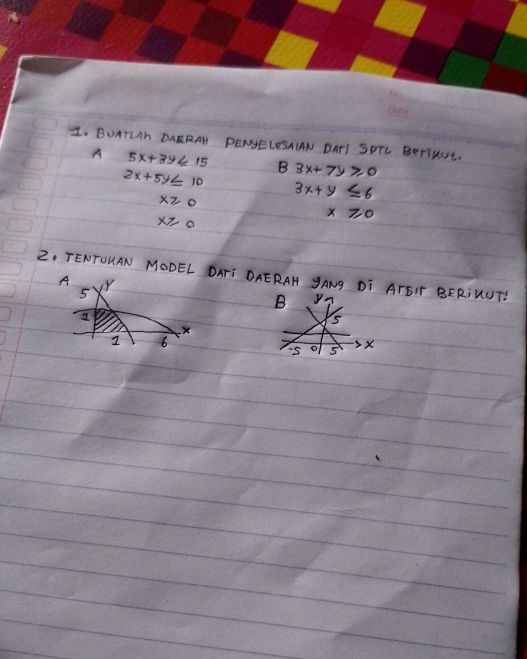 No.
Date
1. BUATLAH DAERAH PENYELESAIAN DARI SPTL BERIKUT.
A 5x+3y≤ 15
2x+5y≤ 10
x≥ 0
x≥ 0
B 3x+7y≥0
3x+y ≤6
x ≥0
2. TENTUKAN MODEL DARI DAERAH YANG DI ARSIR BERIKUT!
A
y
5
1
1
6
x
B
y
5
-5 0 5 x